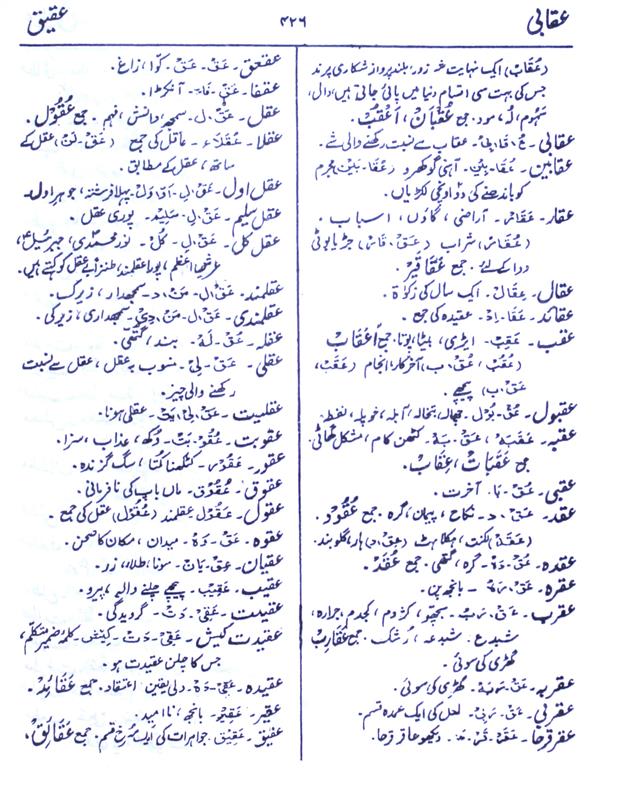 عقابی ۴۲۶ عقیق
(عُقَاب) ایک نہایت شہ زور، بلند پرواز شکاری پرند
جس کی بہت سی اقسام دنیا میں پائی جاتی ہیں، دال،
جمع عُقْبَان، اَعْقُب۔
عقابی۔ عُ۔قَا۔بِیْ۔ عقاب سے نسبت رکھنے والی شے۔
عقابین۔ آہنی گوکھرو (عُقَا۔بَیْن) مجرم
کو باندھنے کی دو اونچی لکڑیاں۔
عقار۔ عَقَار۔ آراضی، گاؤں، اسباب۔
شراب (عَقْ۔قَار) جڑیا بوٹی
دوا کے لئے۔ جمع عَقَاقِیْر۔
عقال۔ عِقَال۔ ایک سال کی زکوٰۃ۔
عقائد۔ عَقَا۔اِد۔ عقیدہ کی جمع۔
عقب۔ عَقِبْ۔ ایڑی، بیٹا، پوتا۔ جمع اَعْقَاب
(عُقُبْ، عُقْ۔ب) آخر کار، انجام (عَقَبْ،
عَقْ۔ب) پیچھے۔
عقبول۔ عُقْ۔بُوْل۔ چھالا، تبخالہ، آبلہ،
عقبہ۔ عَقَبَہ، عَقْ۔بَہْ۔ کٹھن کام، مشکل گھاٹی۔
جمع عَقَبَات، عِقَاب۔
عقبیٰ۔ عُقْ۔بَا۔ آخرت۔
عقد۔ عَقْ۔د۔ نکاح، پیمان، گرہ۔ جمع عُقُوْد۔
(عَقَدْ) لکنت، ہکلاہٹ (عِقْ۔د) ہار، گلوبند۔
عقدہ۔ عُقْ۔دَہْ۔ گرہ، گتھی۔ جمع عُقَدْ۔
عقرہ۔ عُقْ۔رَہْ۔ بانجھ پن۔
عقرب۔ عَقْ۔رَبْ۔ بچھو، کژدم، کجدم، جرارہ،
شبدع۔ جمع عَقَارِب
گھڑی کی سوئی۔
عقربہ۔ عَقْ۔رَبَہْ۔ گھڑی کی سوئی۔
عقربی۔ عَقْ۔رَبِیْ۔ لعل کی ایک عمدہ قسم۔
عقرقرحا۔ عَقَرْ۔قَرْ۔حَا۔ دیکھو عاقر قرحا۔
عقعق۔ عَقْ۔عَقْ۔ کوّا، زاغ۔
عقفا۔ عَقْ۔فَاء۔ آنکڑا۔
عقل۔ عَقْ۔ل۔ سمجھ، دانش، فہم۔ جمع عُقُوْل۔
عقلا۔ عُقَلَاء۔ عاقل کی جمع (عَقْ۔لَنْ) عقل کے
ساتھ، عقل کے مطابق۔
عقل اول۔ عَقْ۔لِ۔اَوْ۔وَلْ۔ پہلا فرشتہ، جوہر اول۔
عقل سلیم۔ عَقْ۔لِ۔سَلِیْم۔ پوری عقل۔
عقل کل۔ عَقْ۔لِ۔کُل۔ نور محمدی، جبرئیل،
عرش اعظم، پورا عقلمند، طنزاً بے عقل کو کہتے ہیں۔
عقلمند۔ عَقْ۔ل۔مَنْ۔د۔ سمجھدار، زیرک۔
عقلمندی۔ عَقْ۔ل۔مَنْ۔دِیْ۔ سمجھداری، زیرکی۔
عقلہ۔ عُقْ۔لَہْ۔ بند، گتھی۔
عقلی۔ عَقْ۔لِیْ۔ منسوب بہ عقل، عقل سے نسبت
رکھنے والی چیز۔
عقلیت۔ عَقْ۔لِیْ۔یَتْ۔ عقلی ہونا۔
عقوبت۔ عُقُوْ۔بَتْ۔ دُکھ، عذاب، سزا۔
عقور۔ عَقُوْر۔ کٹکھنا کتا، سگ گزندہ۔
عقوق۔ عُقُوْق۔ ماں باپ کی نافرمانی۔
عقول۔ عَقُوْل۔ عقلمند (عُقُوْل) عقل کی جمع۔
عقوہ۔ عَقْ۔وَہْ۔ میدان، مکان کا صحن۔
عقیان۔ عِقْ۔یَان۔ سونا، طلاء، زر۔
عقیب۔ عَقِیْب۔ پیچھے چلنے والا، پیرو۔
عقیدت۔ عَقِیْ۔دَتْ۔ گرویدگی۔
عقیدت کیش۔ عَقِیْ۔دَتْ۔کِیْش۔ کلمۂ ضمیر متکلم،
جس کا چلن عقیدت ہو۔
عقیدہ۔ عَقِیْ۔دَہْ۔ دلی یقین، اعتقاد۔ جمع عَقَائِد۔
عقیم۔ عَقِیْم۔ بانجھ، ناامید۔
عقیق۔ عَقِیْق۔ جواہرات کی ایک سرخ قسم۔ جمع عَقَائِق،